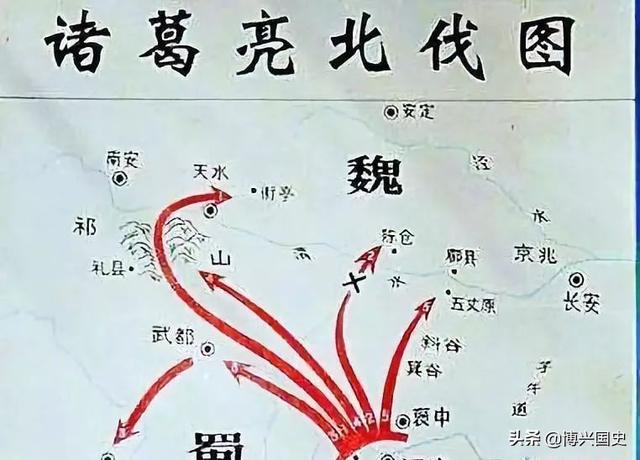 诸葛亮北伐图
安定
南安
天水
街亭
魏
泾
水
祁
山
礼县
渭
水
陈仓
郿县
京兆
长安
五丈原
武都
斜谷
箕谷
子午道
褒中
蜀
头条 @博兴国史